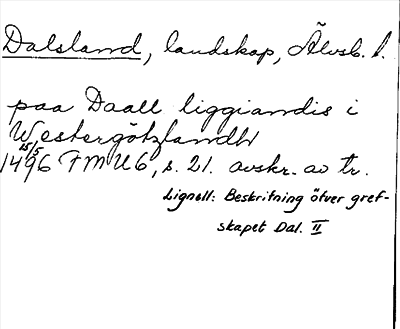 Dalsland, landskap, Älvsb. l.
paa Daall liggiandis i
Westergötzlandh
15/5
1496 FMU 6, s. 21. avskr. av tr.
Lignell: Beskrifning öfver gref-
skapet Dal. II